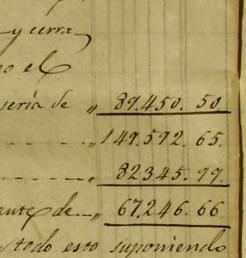 y cerra
no el
sería de " 89.450. 50
" 149.592. 65.
82345. 99
ante de " 67.246. 66
todo esto suponiendo